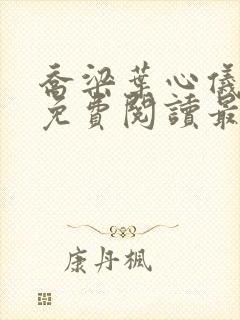 喬梁葉心儀
免費閱讀最
康丹楓